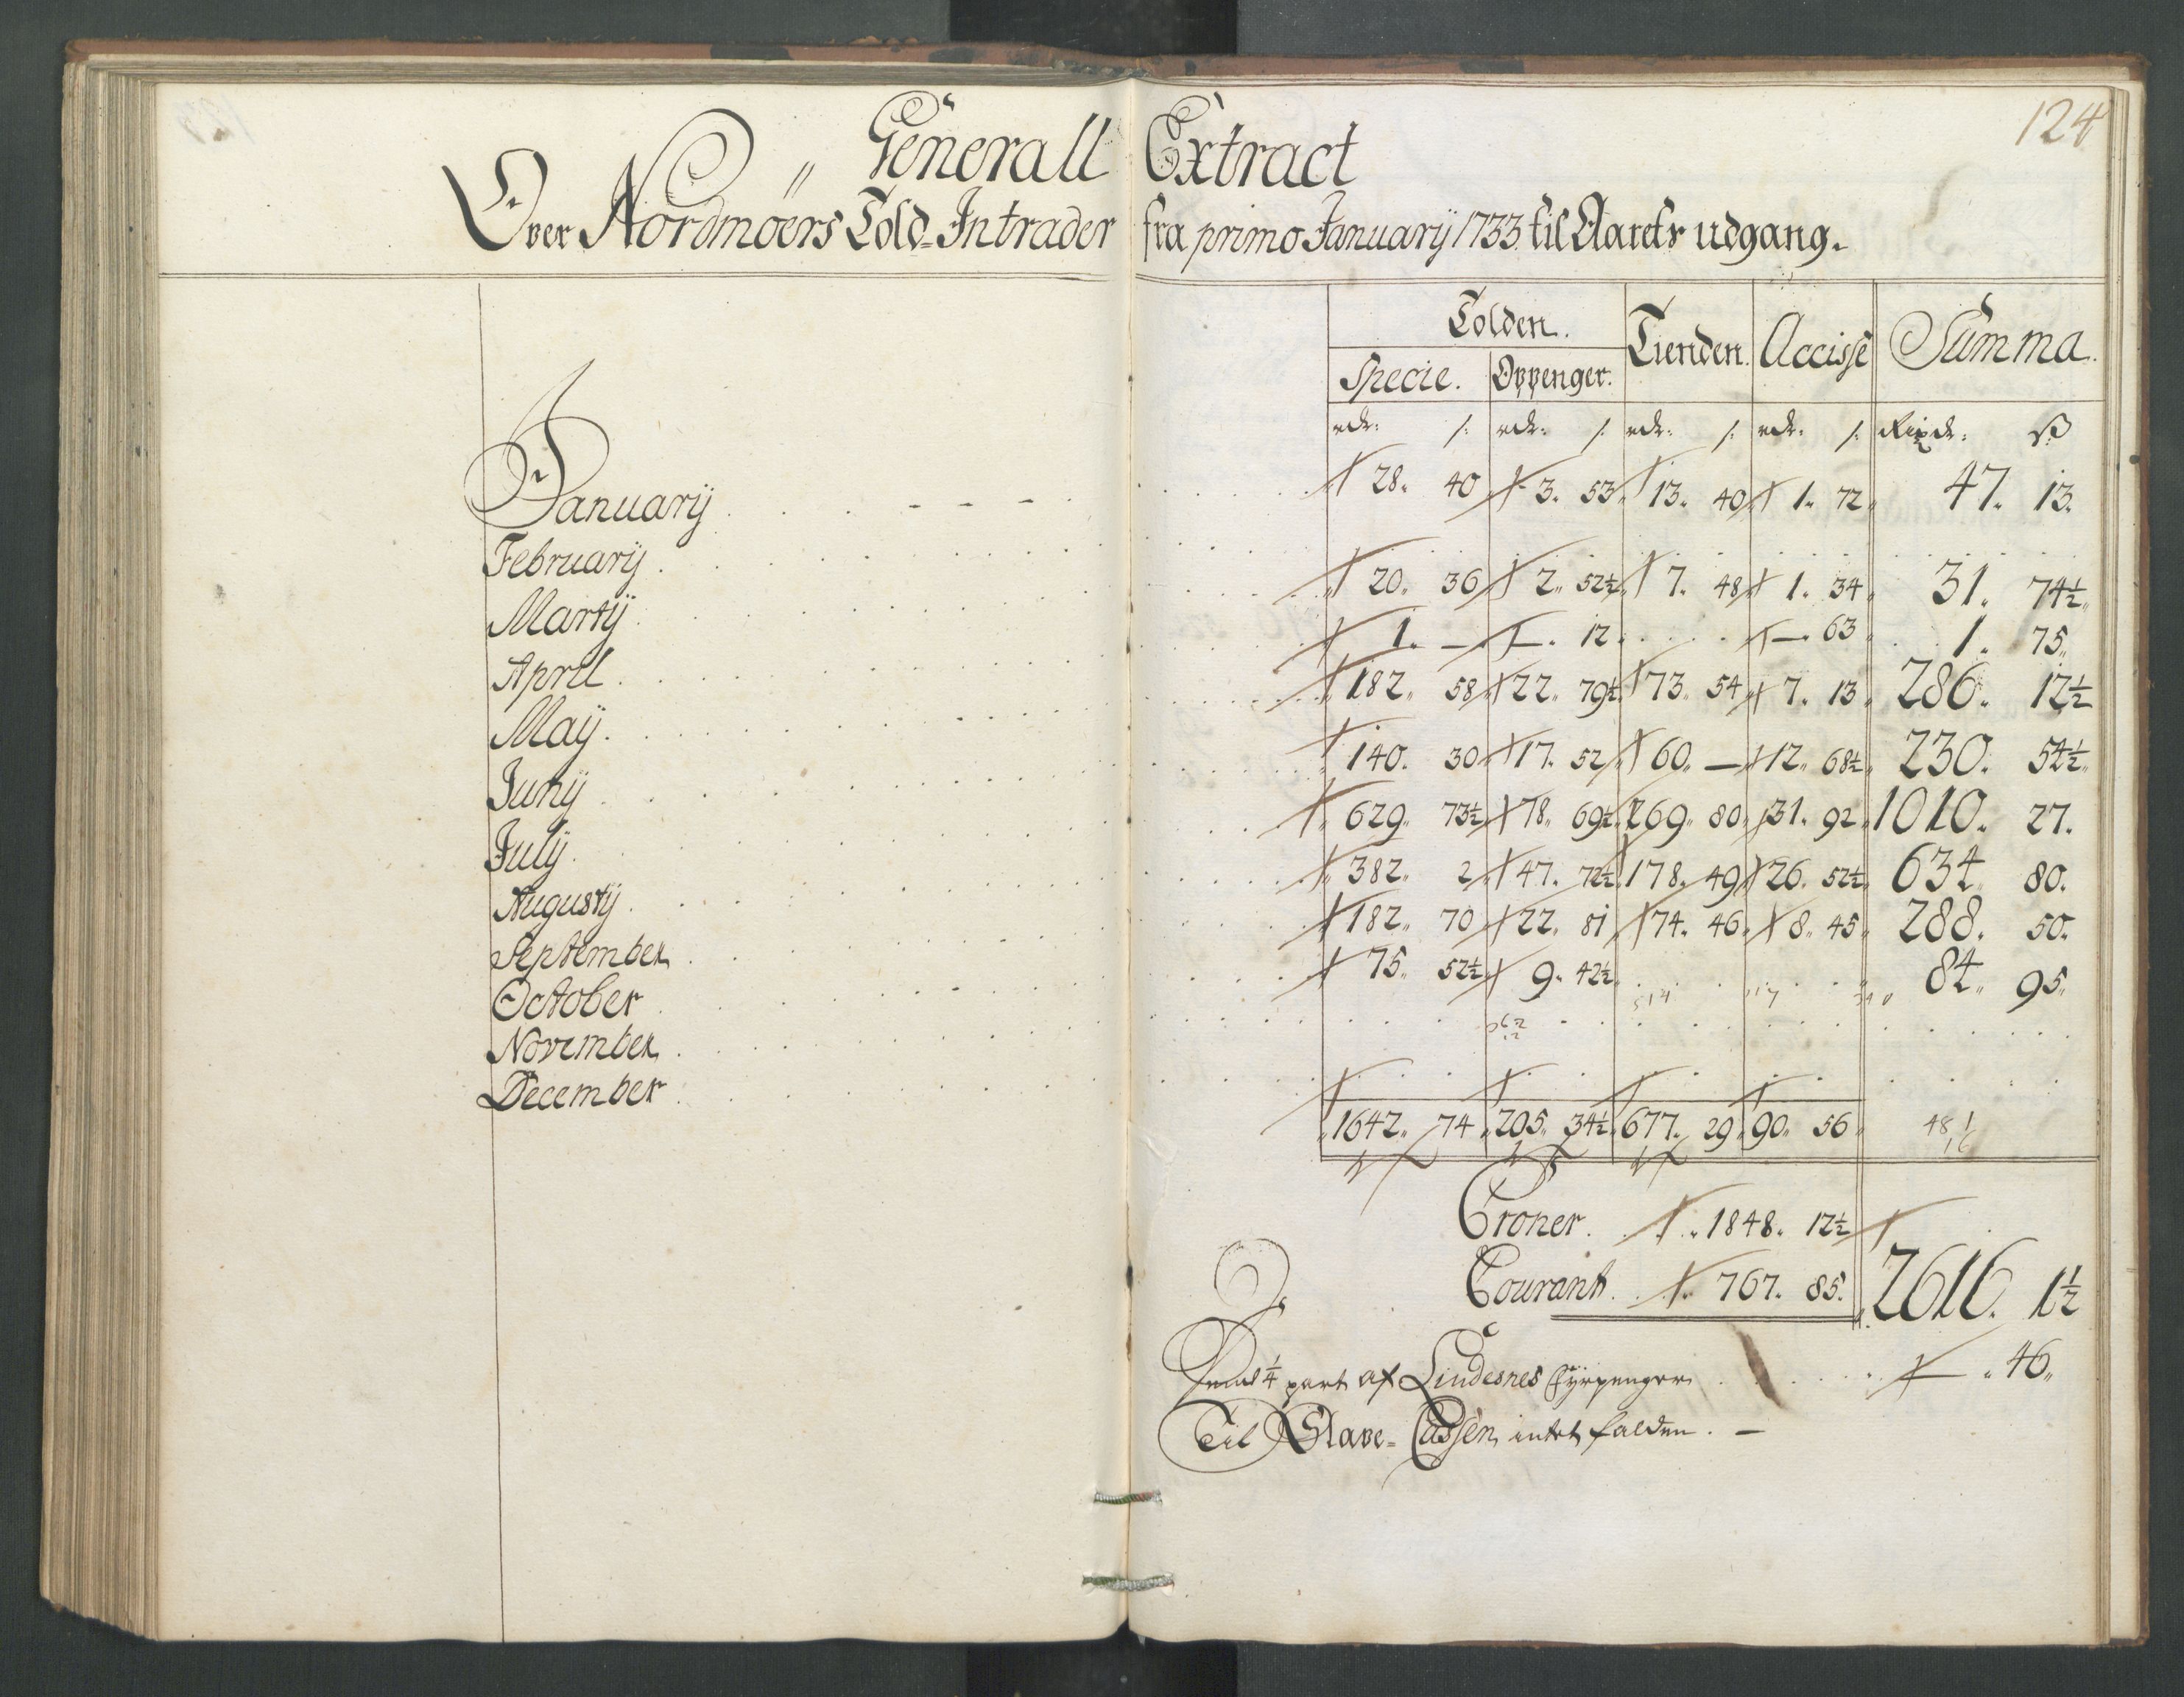 124
Generall Extract
Over Nordmöers Told-Intrader fra primo January 1733 til Aarets udgang.
Tolden. Tienden. Accisse Summa.
Specie. Oppenger.
rdr: s: rdr: s: rdr: s: rdr: s: Rixdr: ß
January . . . 28. 40 3. 53 13. 40 1. 72 47. 13.
February . . .
Martij . . . 20. 36 2. 52½ 7. 48 1. 34 31. 74½
April . . . 1. — —. 12 . . . —. 63 1. 75
Maÿ . . . 182. 58 22. 79½ 73. 54 7. 13 286. 12½
Junÿ . . . 140. 30 17. 52 60. — 12. 68½ 230. 54½
Julÿ . . . 629. 73½ 78. 69½ 269. 80 31. 92 1010. 27.
Augustÿ . . . 382. 2 47. 72½ 178. 49 26. 52½ 634. 80.
September . . . 182. 70 22. 81 74. 46 8. 45 288. 50.
October . . . 75. 52½ 9. 42½ . . . 84. 95.
November . . .
December . . .
1642. 74 205. 34½ 677. 29 90. 56
Croner. 1848. 12½
Courant. 767. 85. 2616. 1½
¼ part af Lindesnes Fyrpenger . . . — 46
Til Slave-Cassen intet falden. —